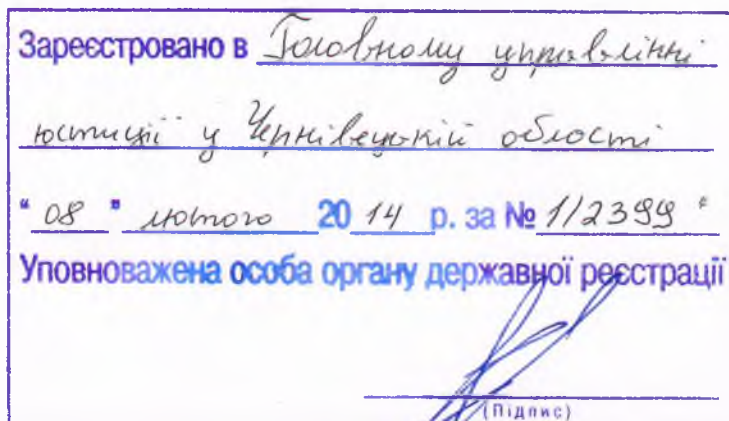 Зареєстровано в Головному управлінні
юстиції у Чернівецькій області
"08" лютого 2014 р. за № 1/2399
Уповноважена особа органу державної реєстрації
(Підпис)